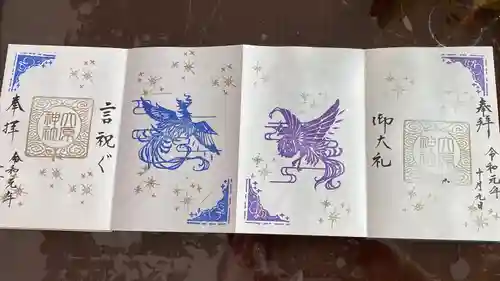 奉拝
令和元年
十月九日
御大礼
神社
言祝ぐ
神社
奉拝
令和元年